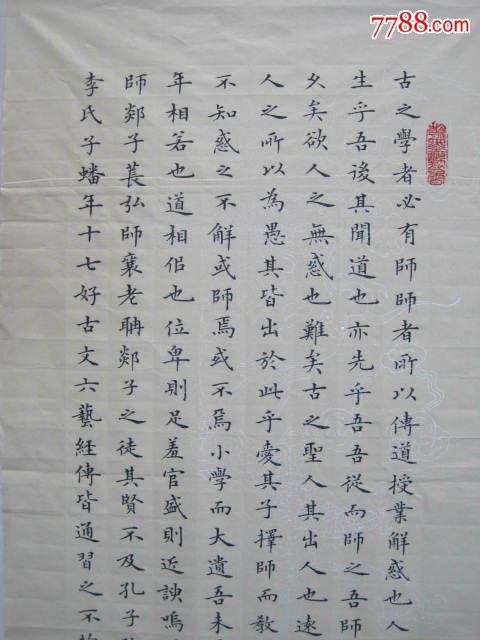 7788.com
古之學者必有師師者所以傳道授業解惑也人
生乎吾後其聞道也亦先乎吾吾從而師之吾師
久矣欲人之無惑也難矣古之聖人其出人也遠
人之所以為愚其皆出於此乎愛其子擇師而教
不知惑之不解或師焉或不焉小學而大遺吾未
年相若也道相似也位卑則足羞官盛則近諛嗚
師郯子萇弘師襄老聃郯子之徒其賢不及孔子
李氏子蟠年十七好古文六藝經傳皆通習之不